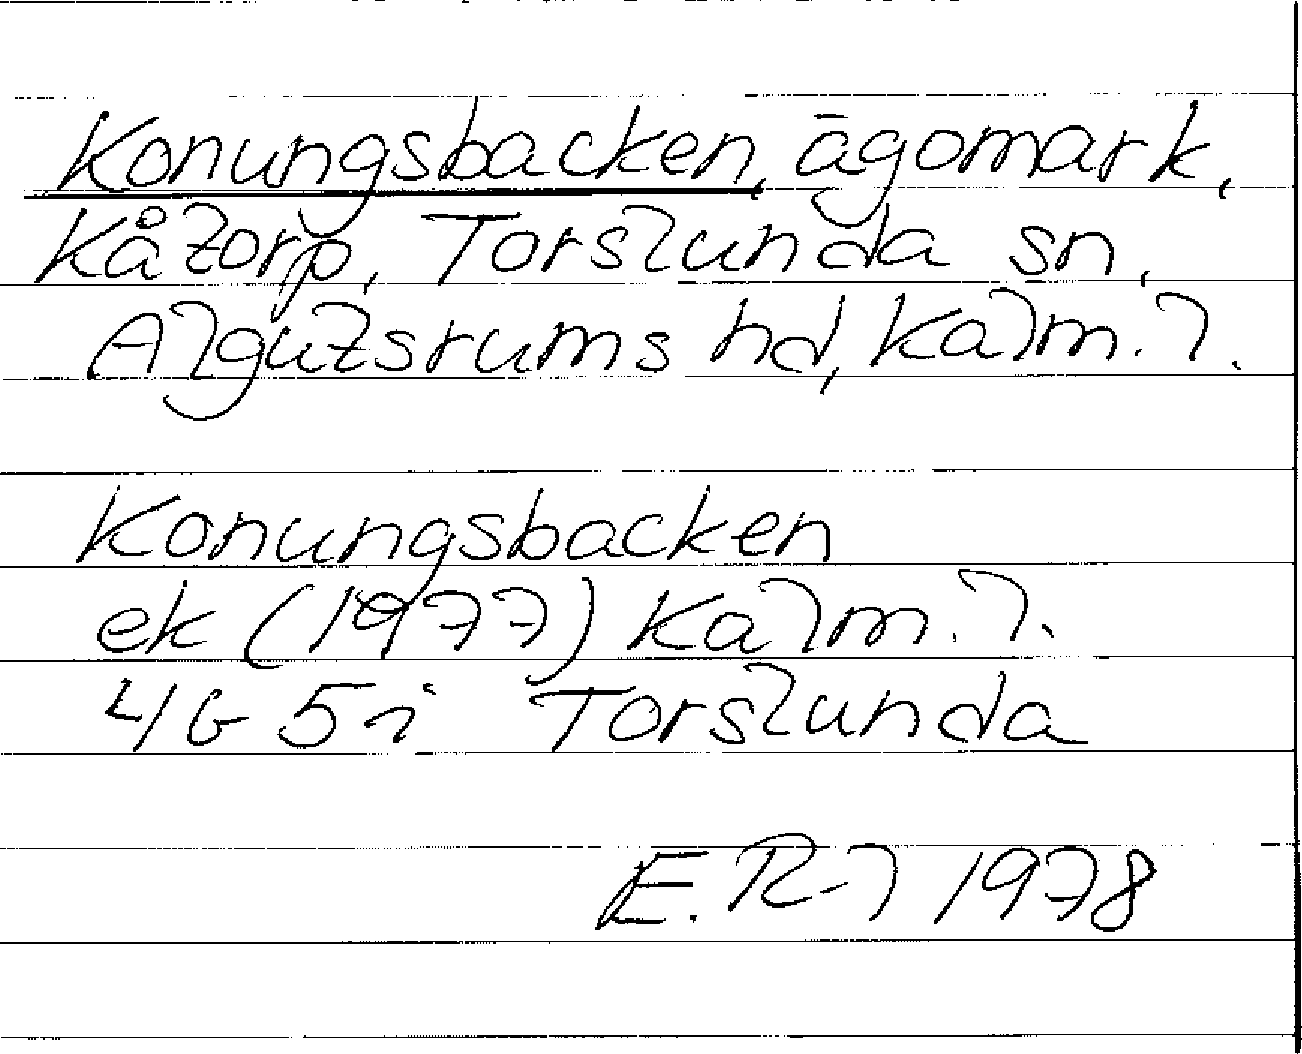 Konungsbacken, ägomark,
Kåtorp, Torslunda sn,
Algutsrums hd, Kalm. l.
Konungsbacken
ek (1977) Kalm. l.
4G 5i Torslunda
E. R-l 1978